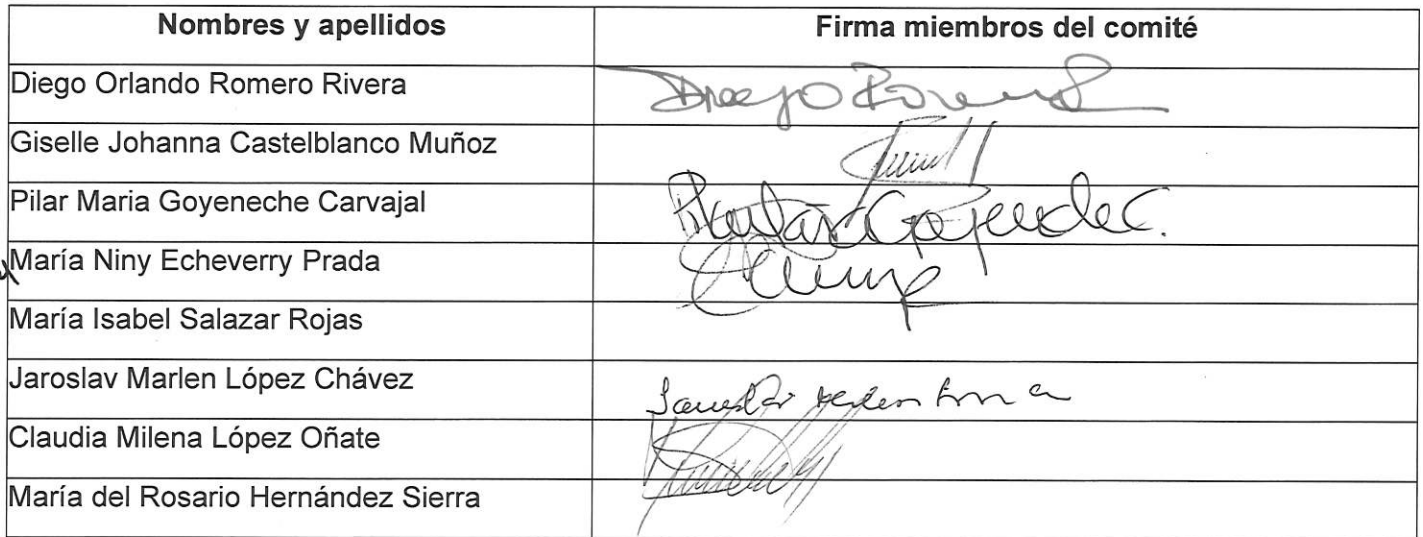 Nombres y apellidos
Firma miembros del comité
Diego Orlando Romero Rivera
Diego Romero
Giselle Johanna Castelblanco Muñoz
Pilar Maria Goyeneche Carvajal
María Niny Echeverry Prada
María Isabel Salazar Rojas
Jaroslav Marlen López Chávez
Claudia Milena López Oñate
María del Rosario Hernández Sierra